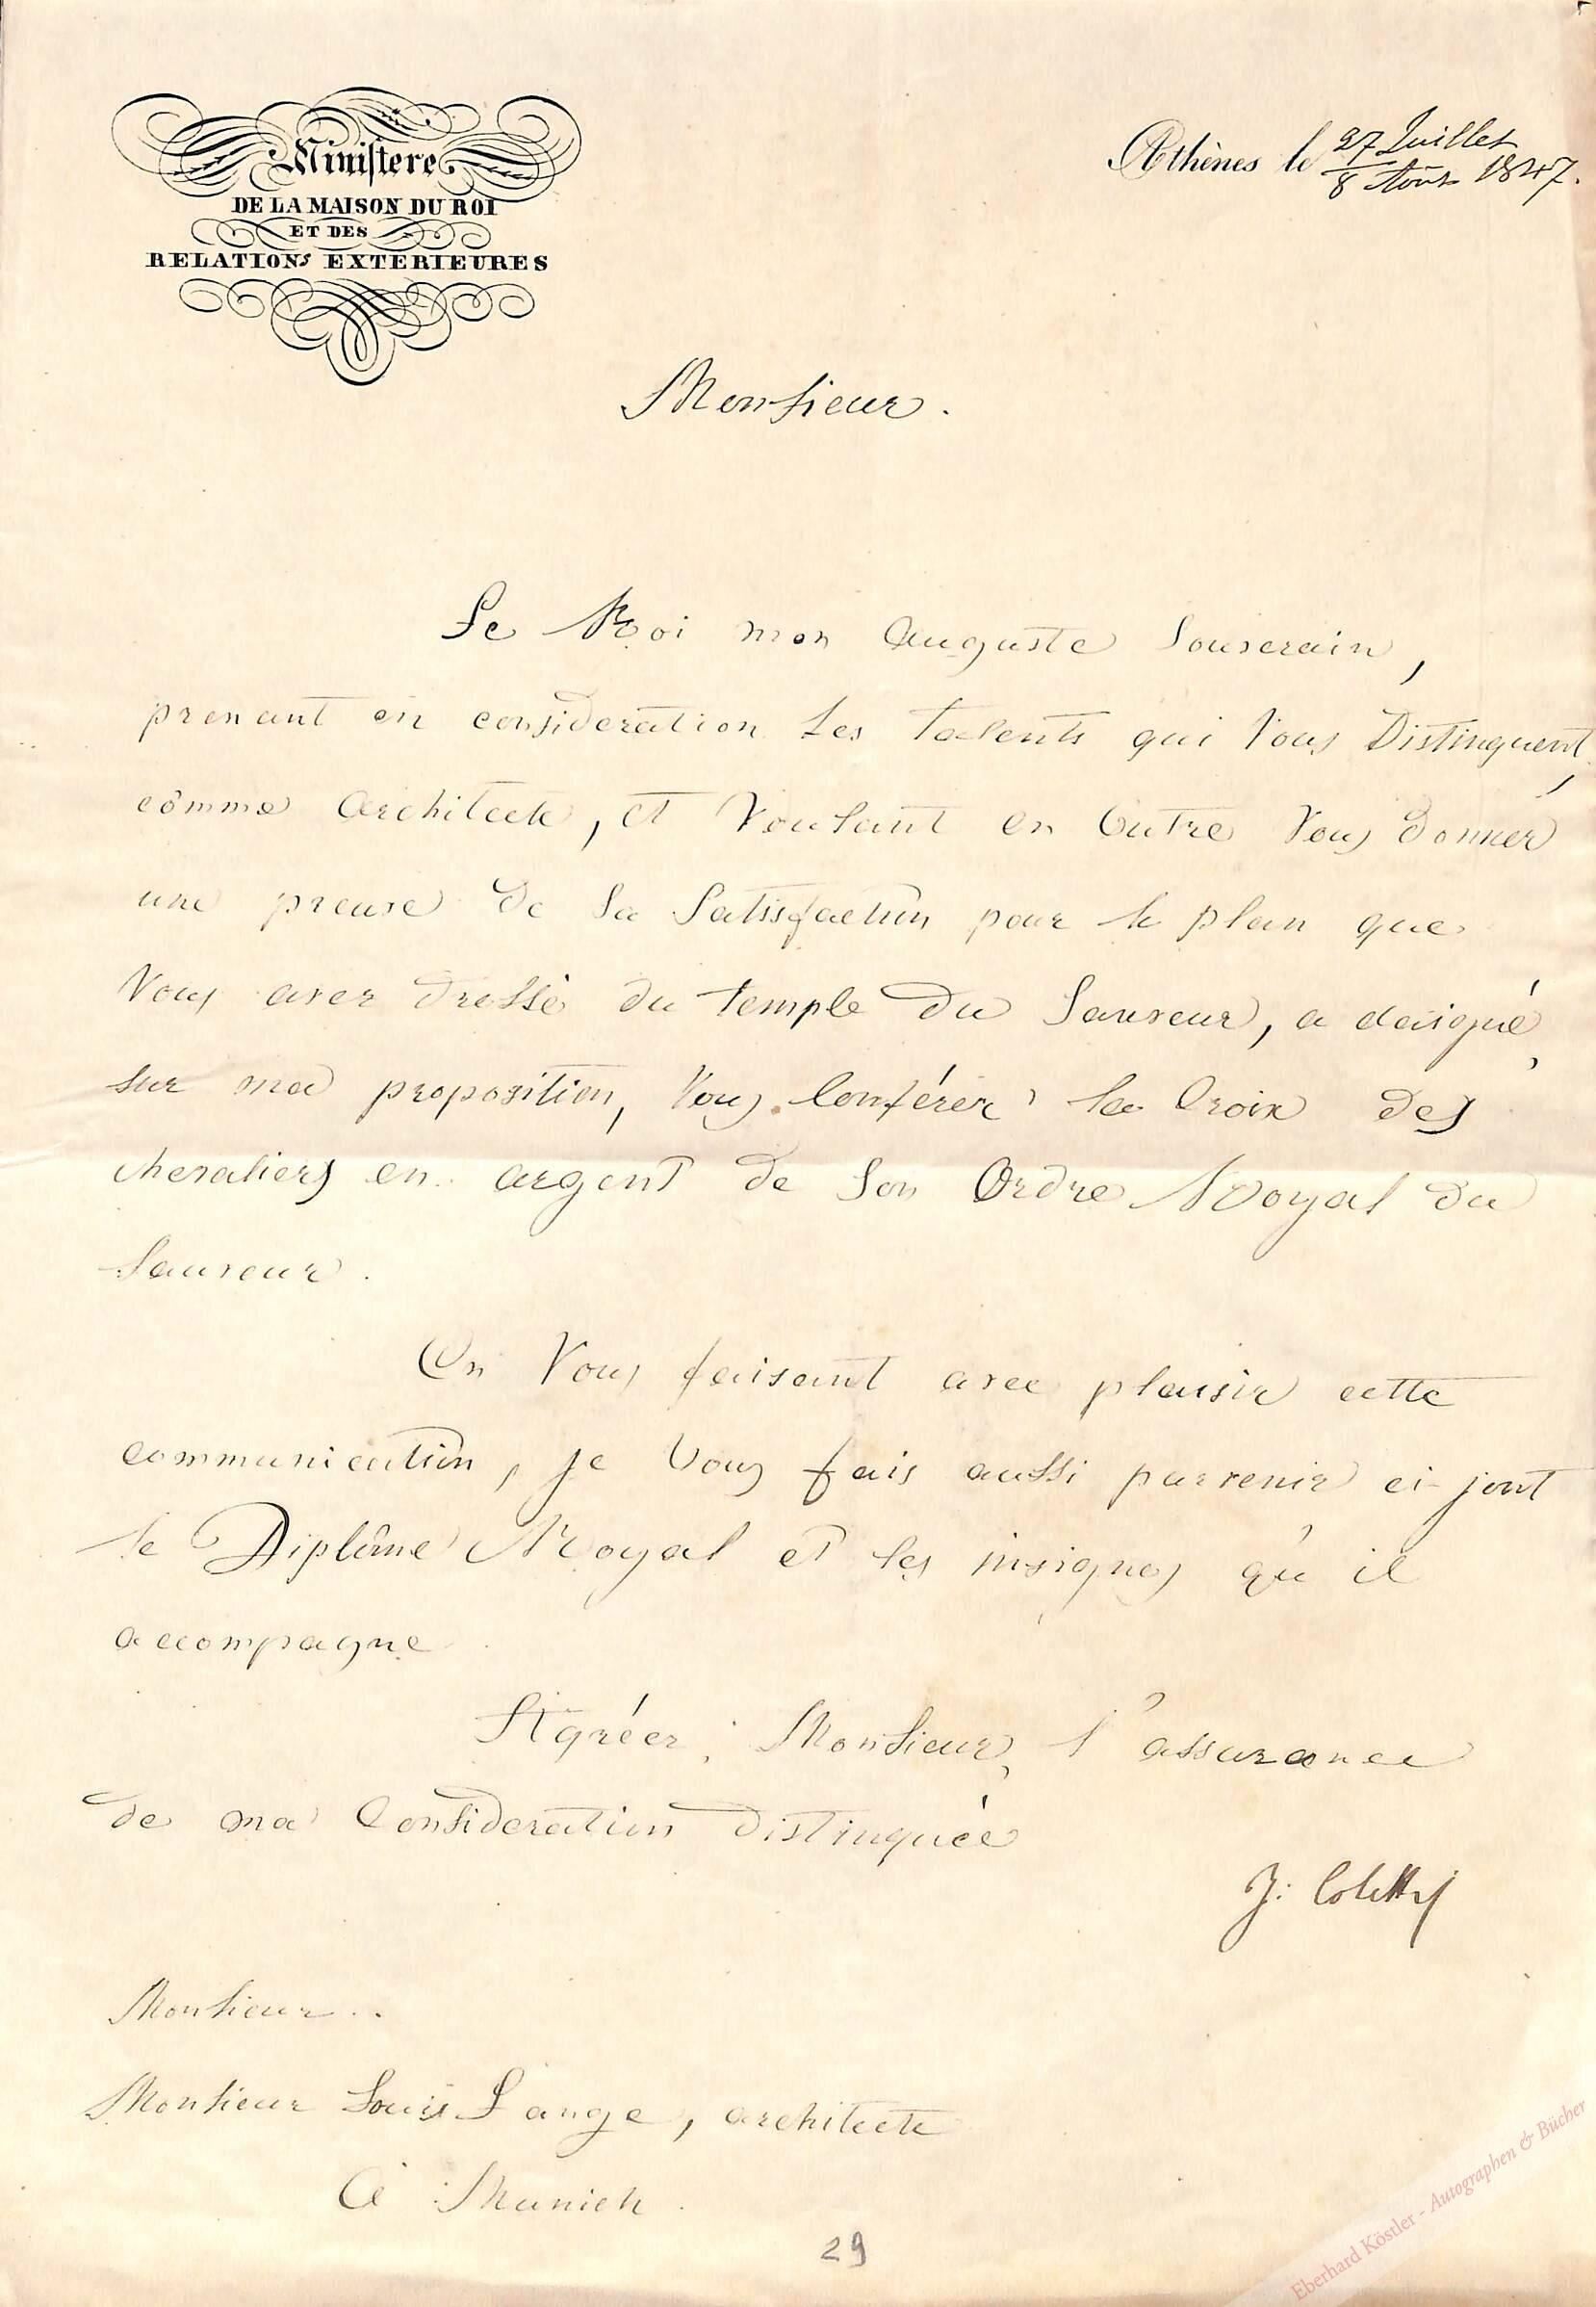 Ministere
DE LA MAISON DU ROI
ET DES
RELATIONS EXTERIEURES
Athènes le 27 Juillet
8 Août 1847.
Monsieur.
Le Roi mon Auguste Souverain,
prenant en consideration les talents qui Vous Distinguent,
cômme Architecte, et Voulant en Outre Vous donner
une preuve de Sa Satisfaction pour le plan que
Vous avez dressé du temple du Sauveur, a daigné,
sur ma proposition, Vous Conférer la Croix des
chevaliers en argent de Son Ordre Royal du
Sauveur.
En Vous faisant avec plaisir cette
communication, je Vous fais aussi parvenir ci-joint
le Diplôme Royal et les insignes qu'il
accompagne
Agréez, Monsieur, l'assurance
de ma Consideration distinguée
J: Coletty
Monsieur..
Monsieur Louis Lange, architecte
à Munich.
29
Eberhard Köstler - Autographen & Bücher